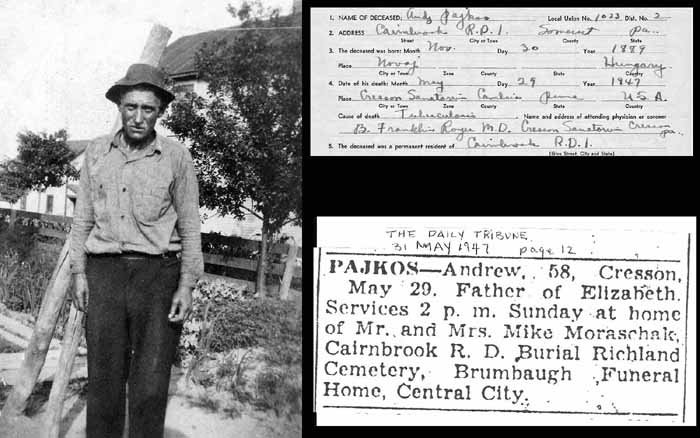 1. NAME OF DECEASED: Andy Pajkos Local Union No. 1023 Dist. No. 2
2. ADDRESS Cairnbrook R.D.1. Somerset Pa..
Street City or Town County State
3. The deceased was born: Month Nov. Day 30 Year 1889
Place Novaj Hungary
City or Town Zone County State
4. Date of his death: Month May Day 29 Year 1947
Place Cresson Sanatorium Cambria Penna U.S.A.
City or Town Zone County State
Cause of death Tuberculosis Name and address of attending physician or coroner
B. Franklin Royer M.D. Cresson Sanatorium Cresson Pa.
5. The deceased was a permanent resident of Cairnbrook R.D.1.
(Give Street, City and State)
THE DAILY TRIBUNE
31 MAY 1947 page 12
PAJKOS—Andrew, 58, Cresson,
May 29. Father of Elizabeth.
Services 2 p. m. Sunday at home
of Mr. and Mrs. Mike Moraschak,
Cairnbrook R. D. Burial Richland
Cemetery, Brumbaugh Funeral
Home, Central City.